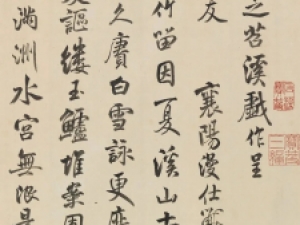 之苕溪戲作呈
友
襄陽漫仕黻
竹留因夏溪山
久賡白雪詠更
謳縷玉鱸堆案團
滿洲水宮無限景